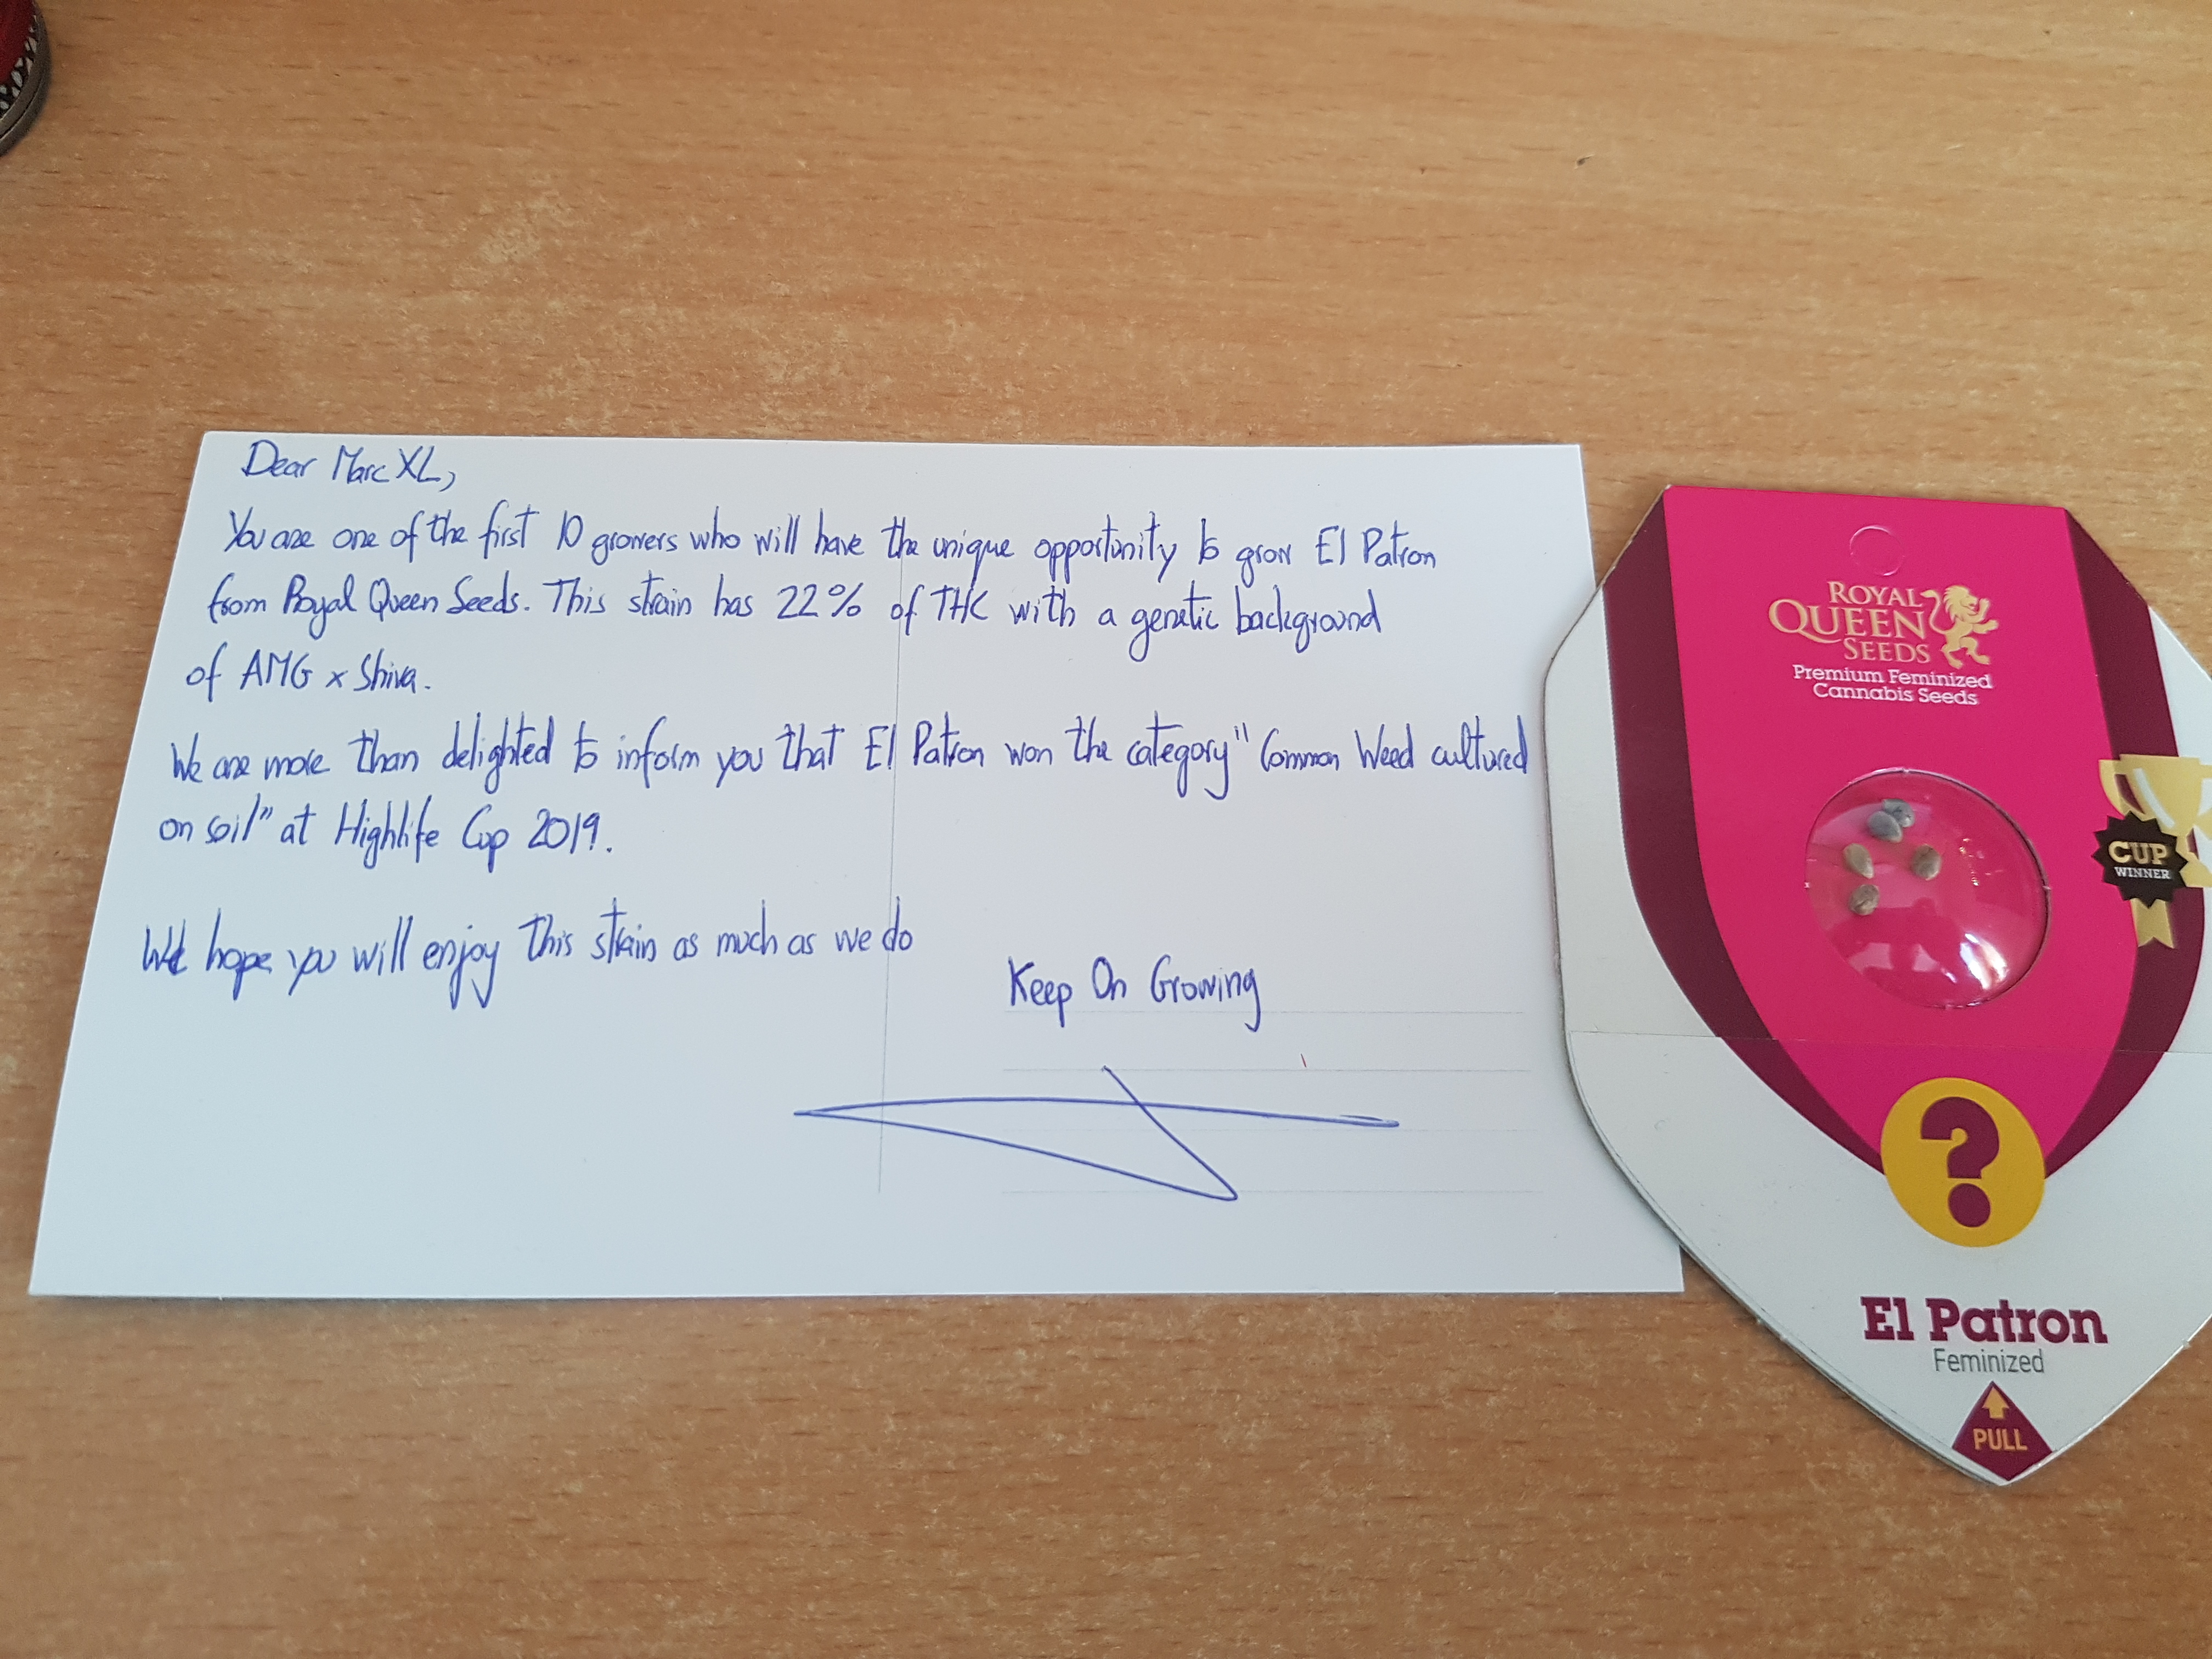 Dear Marc XL,
You are one of the first 10 growers who will have the unique opportunity to grow El Patron
from Royal Queen Seeds. This strain has 22% of THC with a genetic background
of AMG x Shiva.
We are more than delighted to inform you that El Patron won the category "Common Weed cultured
on soil" at Highlife Cup 2019.
We hope you will enjoy this strain as much as we do
Keep On Growing
ROYAL
QUEEN
SEEDS
Premium Feminized
Cannabis Seeds
CUP
WINNER
?
El Patron
Feminized
PULL